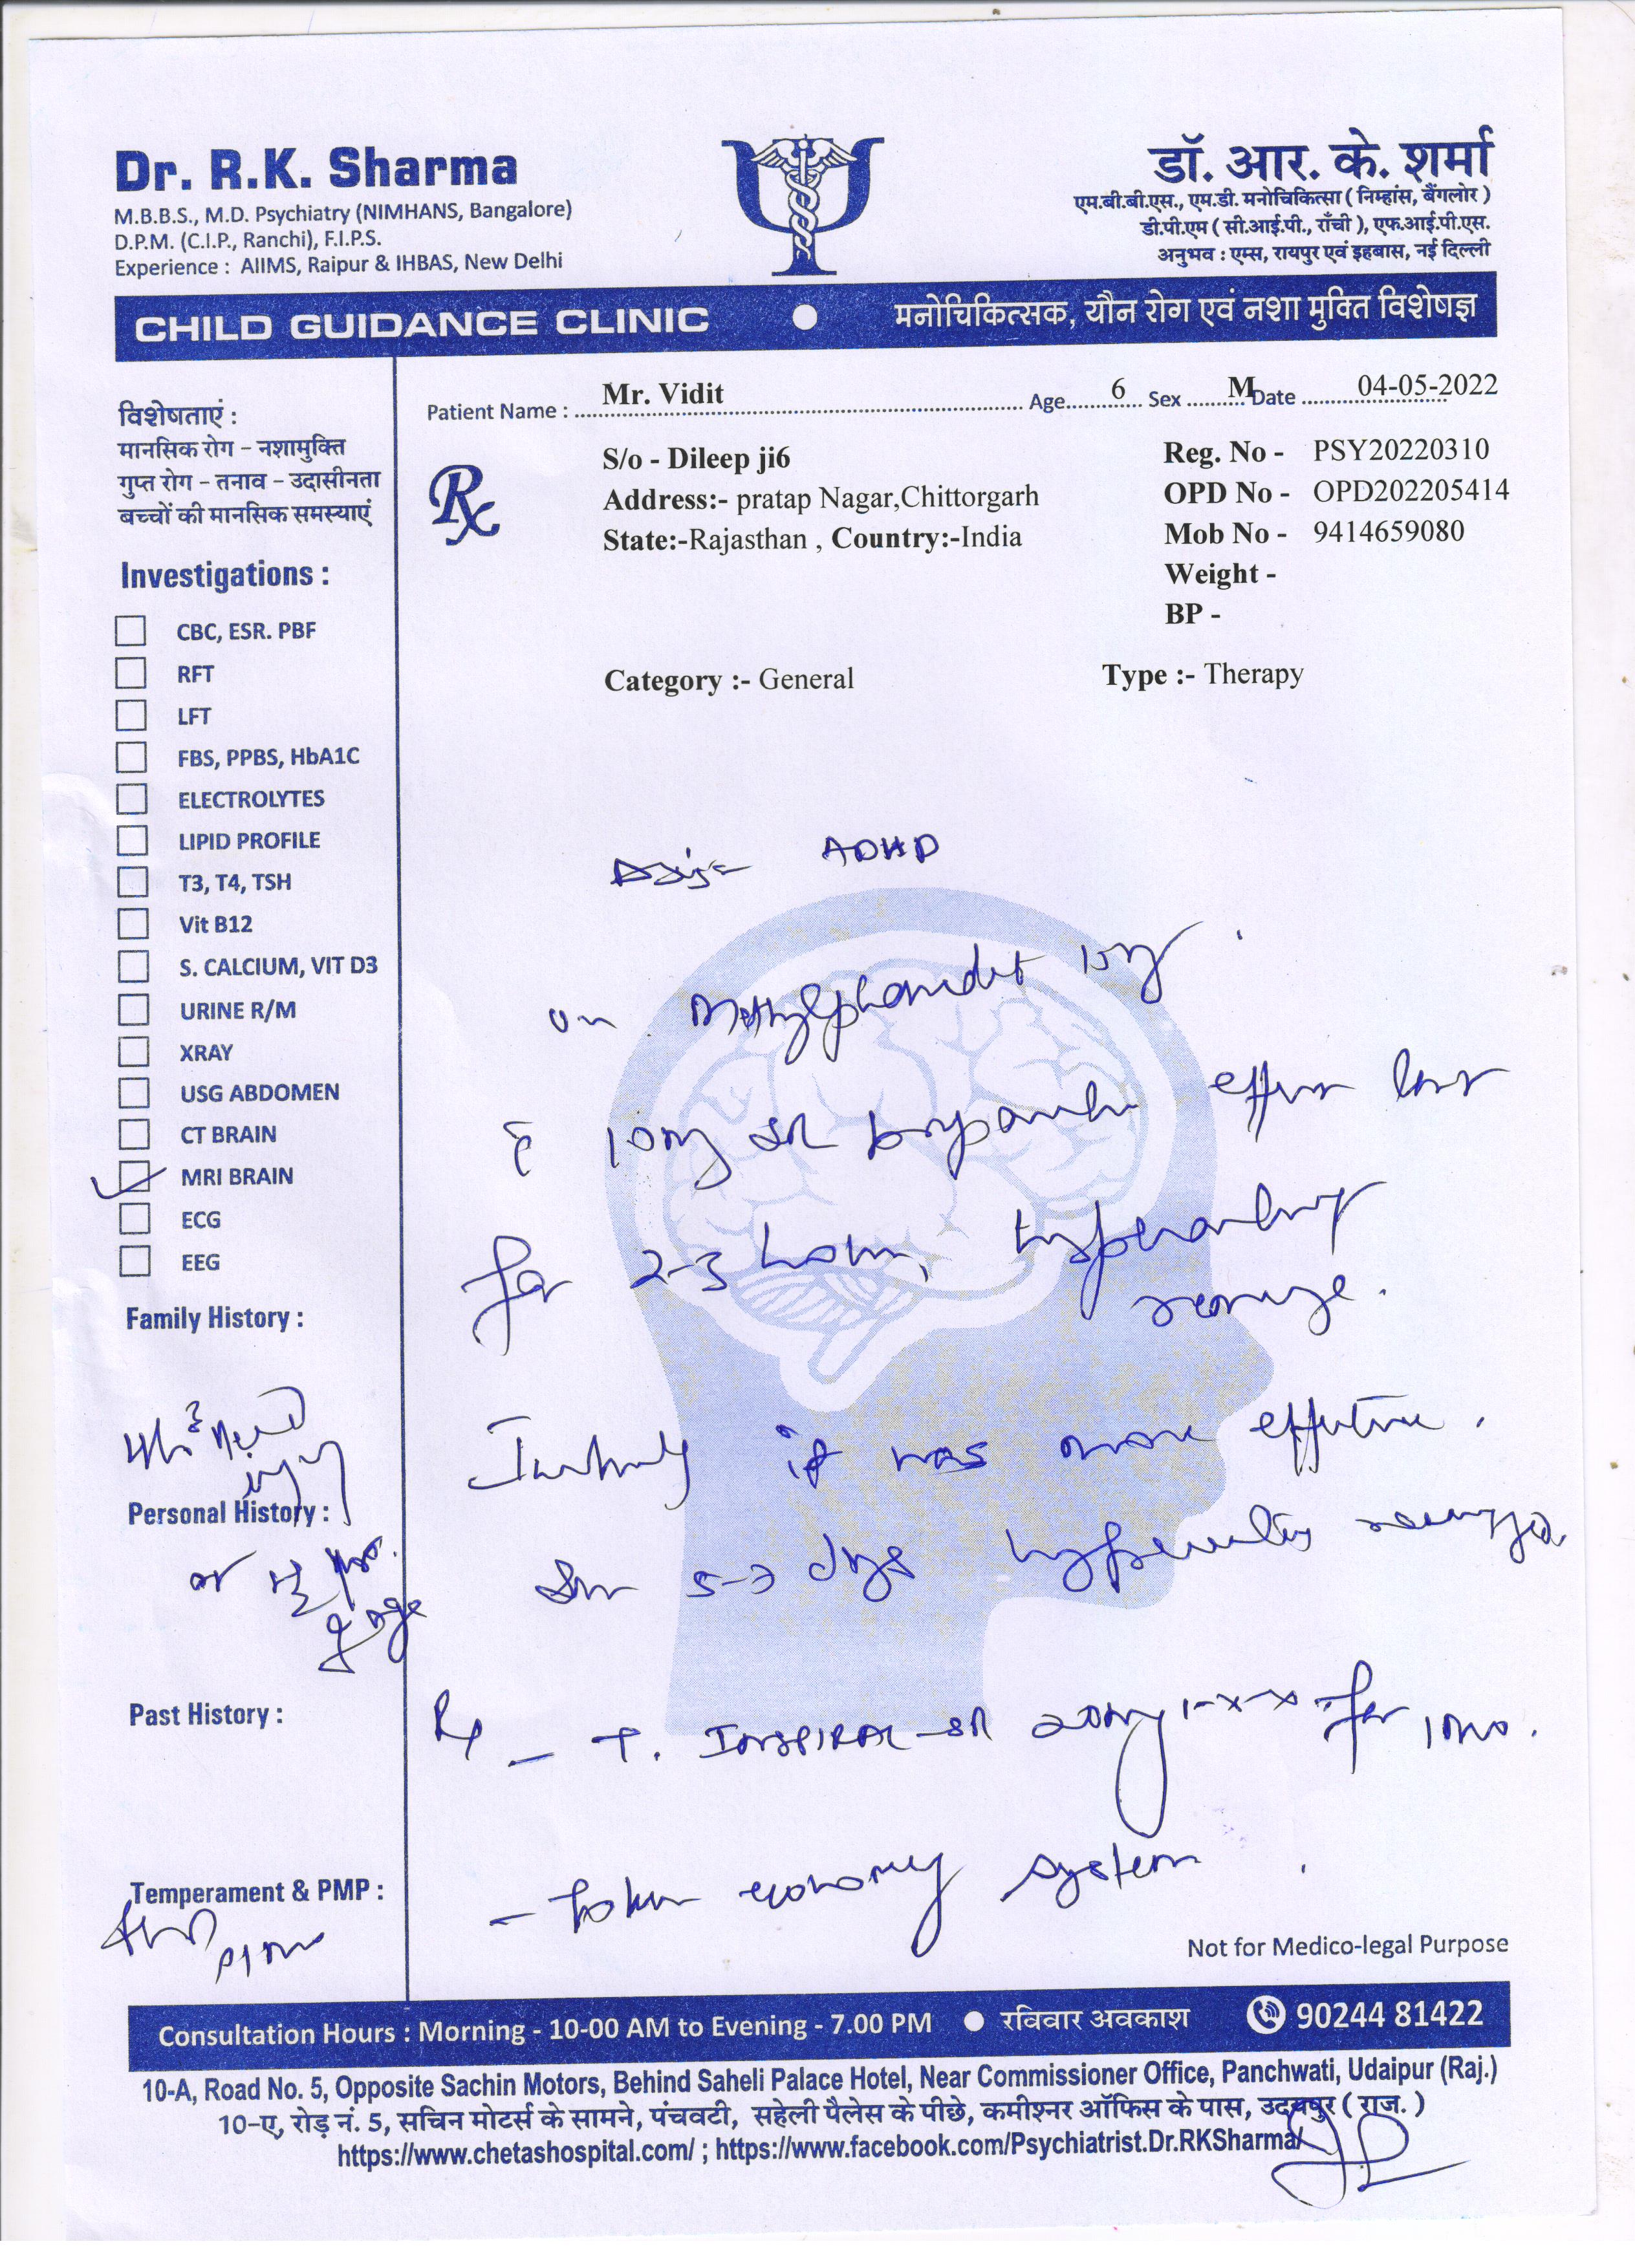 Dr. R.K. Sharma
M.B.B.S., M.D. Psychiatry (NIMHANS, Bangalore)
D.P.M. (C.I.P., Ranchi), F.I.P.S.
Experience : AIIMS, Raipur & IHBAS, New Delhi
डॉ. आर. के. शर्मा
एम.बी.बी.एस., एम.डी. मनोचिकित्सा ( निम्हांस, बैंगलोर )
डी.पी.एम ( सी.आई.पी., राँची ), एफ.आई.पी.एस.
अनुभव : एम्स, रायपुर एवं इहबास, नई दिल्ली
CHILD GUIDANCE CLINIC
मनोचिकित्सक, यौन रोग एवं नशा मुक्ति विशेषज्ञ
Patient Name : Mr. Vidit Age 6 Sex M Date 04-05-2022
S/o - Dileep ji6
Address:- pratap Nagar,Chittorgarh
State:-Rajasthan , Country:-India
Reg. No - PSY20220310
OPD No - OPD202205414
Mob No - 9414659080
Weight -
BP -
Category :- General Type :- Therapy
विशेषताएं :
मानसिक रोग - नशामुक्ति
गुप्त रोग - तनाव - उदासीनता
बच्चों की मानसिक समस्याएं
Investigations :
CBC, ESR. PBF
RFT
LFT
FBS, PPBS, HbA1C
ELECTROLYTES
LIPID PROFILE
T3, T4, TSH
Vit B12
S. CALCIUM, VIT D3
URINE R/M
XRAY
USG ABDOMEN
CT BRAIN
MRI BRAIN
ECG
EEG
Family History :
Personal History :
Past History :
Temperament & PMP :
Rx
ADHD
on Methylphenidate
10mg SR effect last
for 2-3 hours, hyperactivity
Initially it was more effective.
5-7 days hyperactivity
Rx - T. INSPIRAL-SR 20mg 1-x-x for 1mo.
- Token economy system
Not for Medico-legal Purpose
Consultation Hours : Morning - 10-00 AM to Evening - 7.00 PM ● रविवार अवकाश 90244 81422
10-A, Road No. 5, Opposite Sachin Motors, Behind Saheli Palace Hotel, Near Commissioner Office, Panchwati, Udaipur (Raj.)
10-ए, रोड़ नं. 5, सचिन मोटर्स के सामने, पंचवटी, सहेली पैलेस के पीछे, कमीश्नर ऑफिस के पास, उदयपुर ( राज. )
https://www.chetashospital.com/ ; https://www.facebook.com/Psychiatrist.Dr.RKSharma/